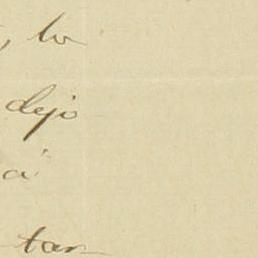 , lo
dejo
á
tan